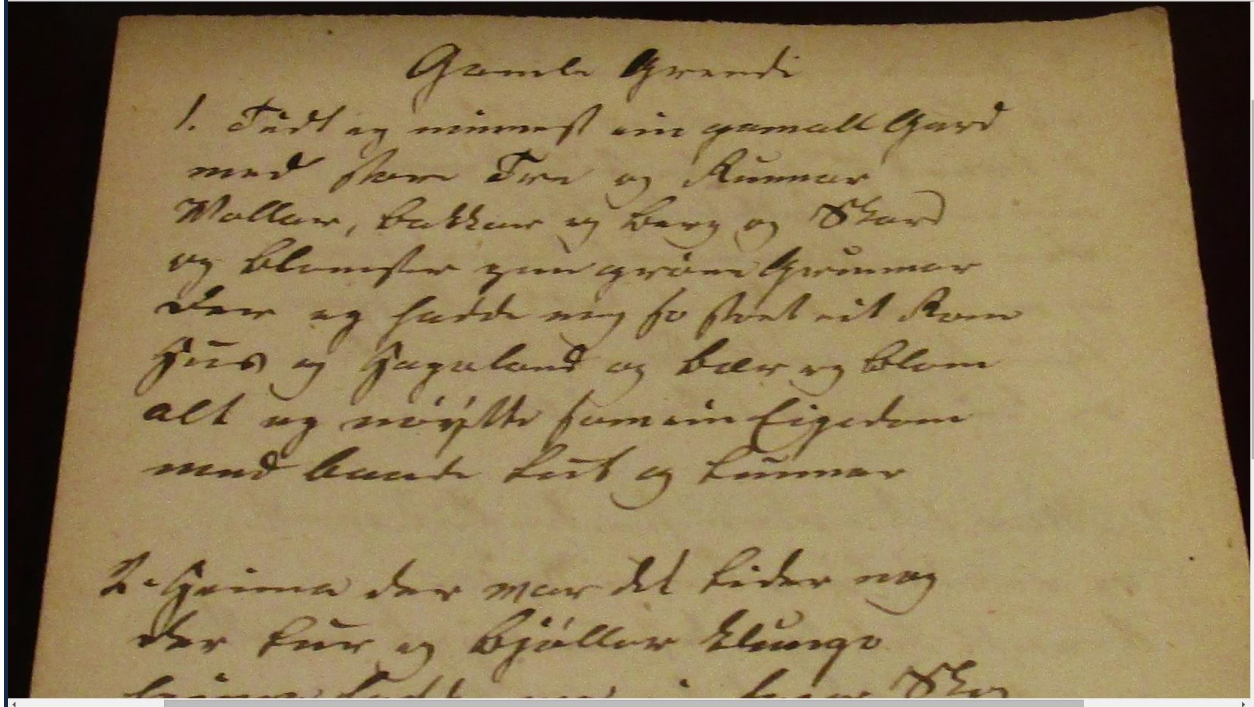 Gamle Grendi
1. Tidt eg minnest ein gamall Gard
med store Tre og Runnar
Vollar, bakkar og berg og Skard
og blomster paa grøne Grunnar
Der eg hadde meg so stort eit Rom
Hus og Hagaland og bær og blom
alt eg nøytte som ein Eigedom
med baade Lut og Lunnar
2. Heima der var det tider nog
der Lur og bjøllar klungo
Skog